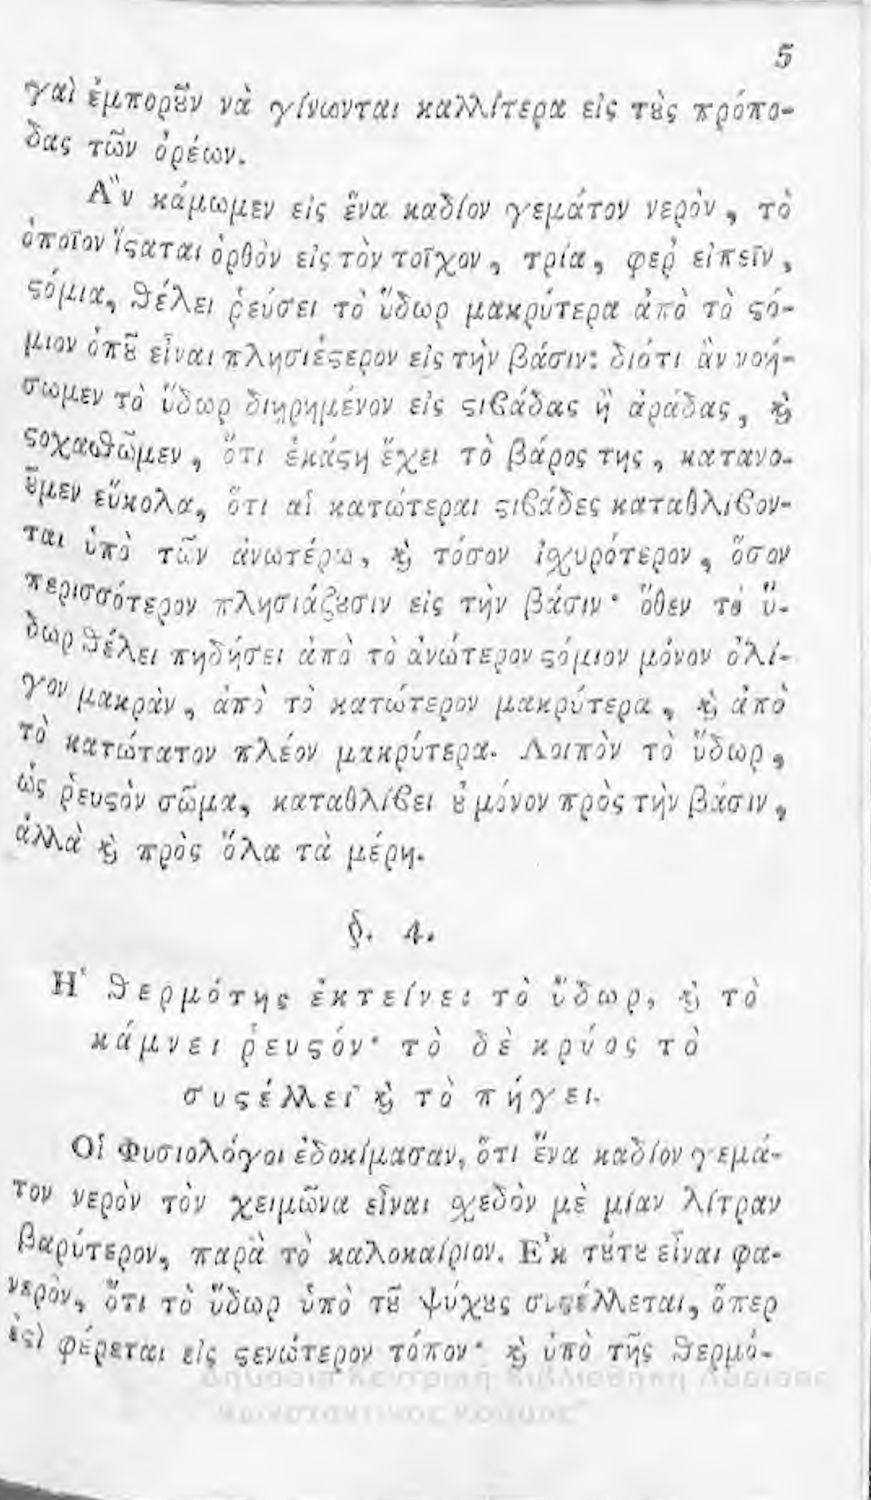 5
γαὶ ἐμπορȣ͂ν νὰ γίνωνται καλλίτερα εἰς τȣ̀ς πρόπο-
δας τῶν ὀρέων.
Ἂν κάμωμεν εἰς ἕνα καδίον γεμάτον νερὸν, τὸ
ὁποῖον ἵϛαται ὀρθὸν εἰς τὸν τοῖχον, τρία, φερ' εἰπεῖν,
ϛόμια, θέλει ῥεύσει τὸ ὕδωρ μακρύτερα ἀπὸ τὸ ϛό-
μιον ὁπȣ͂ εἶναι πλησιέϛερον εἰς τὴν βάσιν: διότι ἂν νοή-
σωμεν τὸ ὕδωρ διῃρημένον εἰς ϛιβάδας ἢ ἀράδας, ϗ̀
ϛοχασθῶμεν, ὅτι ἑκάϛη ἔχει τὸ βάρος της, κατανο-
ȣ͂μεν εὔκολα, ὅτι αἱ κατώτεραι ϛιβάδες καταθλίβον-
ται ὑπὸ τῶν ἀνωτέρω, ϗ̀ τόσον ἰσχυρότερον, ὅσον
περισσότερον πλησιάζȣσιν εἰς τὴν βάσιν· ὅθεν τὸ ὕ-
δωρ θέλει πηδήσει ἀπὸ τὸ ἀνώτερον ϛόμιον μόνον ὀλί-
γον μακρὰν, ἀπὸ τὸ κατώτερον μακρύτερα, ϗ̀ ἀπὸ
τὸ κατώτατον πλέον μακρύτερα. Λοιπὸν τὸ ὕδωρ,
ὡς ῥευϛὸν σῶμα, καταθλίβει ȣ̓ μόνον πρὸς τὴν βάσιν,
ἀλλὰ ϗ̀ πρὸς ὅλα τὰ μέρη.
§. 4.
Ἡ θερμότης ἐκτείνει τὸ ὕδωρ, ϗ̀ τὸ
κάμνει ῥευϛόν· τὸ δὲ κρύος τὸ
συϛέλλει ϗ̀ τὸ πήγει.
Οἱ Φυσιολόγοι ἐδοκίμασαν, ὅτι ἕνα καδίον γεμά-
τον νερὸν τὸν χειμῶνα εἶναι σχεδὸν μὲ μίαν λίτραν
βαρύτερον, παρὰ τὸ καλοκαίριον. Ἐκ τȣ́τȣ εἶναι φα-
νερὸν, ὅτι τὸ ὕδωρ ὑπὸ τȣ͂ ψύχȣς συϛέλλεται, ὅπερ
ἐϛὶ φέρεται εἰς ϛενώτερον τόπον· ϗ̀ ὑπὸ τῆς θερμό-
Δημόσια Κεντρική Βιβλιοθήκη Λάρισας
"Κωνσταντίνος Κούμας"